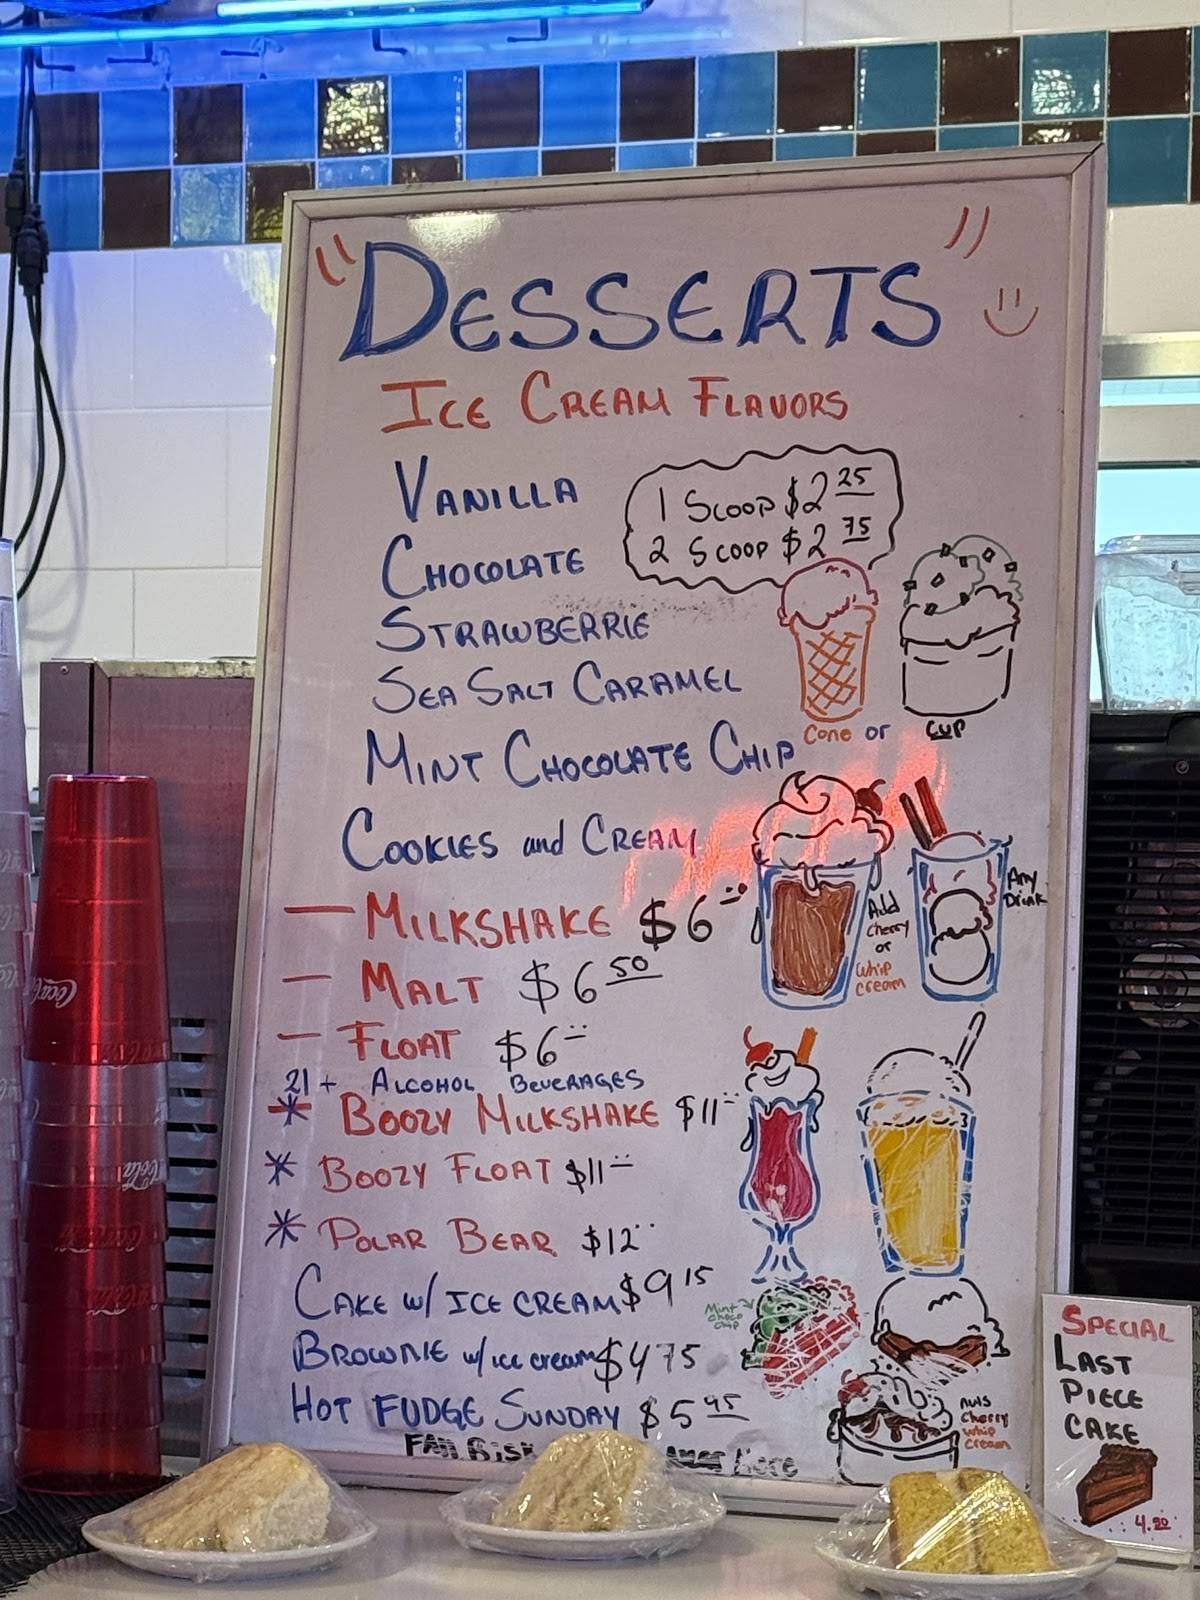 "DESSERTS"
ICE CREAM FLAVORS
VANILLA
1 SCOOP $2 25
2 SCOOP $2 75
CHOCOLATE
STRAWBERRIE
SEA SALT CARAMEL
MINT CHOCOLATE CHIP
Cone or CUP
COOKIES and CREAM
— MILKSHAKE $6
Add cherry or whip cream
Any Drink
— MALT $6 50
— FLOAT $6
21+ ALCOHOL BEVERAGES
* BOOZY MILKSHAKE $11
* BOOZY FLOAT $11
* POLAR BEAR $12
CAKE W/ ICE CREAM $9 15
Mint choco chip
BROWNIE w/ ice cream $4 75
HOT FUDGE SUNDAY $5 45
Cherry
whip
cream
Here
SPECIAL
LAST
PIECE
CAKE
4.50
Coca-Cola